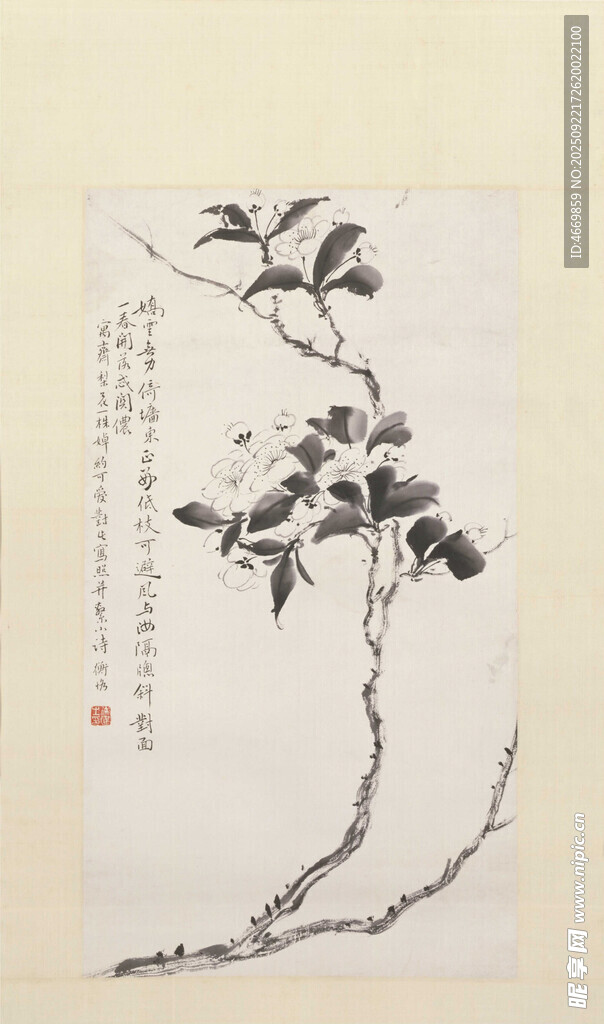 嬌雲無力倚墻東正好低枝可避風与汝隔牕斜對面
一春開落感関儂
寓齋梨花一株婥約可愛對之寫照并繫小詩 衡
ID:4669859 NO:20250922172620022100
昵享网 www.nipic.cn